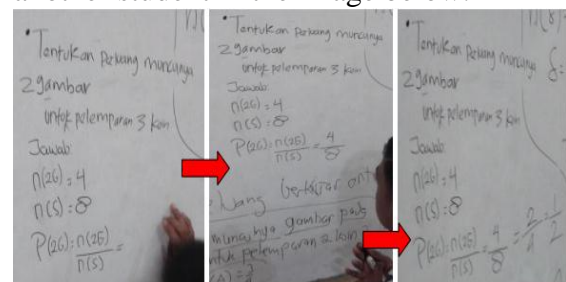 • Tentukan Peluang munculnya
2 gambar
untuk pelemparan 3 koin
Jawab:
n(2G) = 4
n(S) = 8
P(2G) = n(2G)/n(S) =
• Tentukan Peluang munculnya
2 gambar
untuk pelemparan 3 koin
Jawab:
n(2G) = 4
n(S) = 8
P(2G) = n(2G)/n(S) = 4/8
munculnya gambar pada
untuk pelemparan 2 koin
• Tentukan Peluang munculnya
2 gambar
untuk pelemparan 3 koin
Jawab:
n(2G) = 4
n(S) = 8
P(2G) = n(2G)/n(S) = 4/8 = 2/4 = 1/2